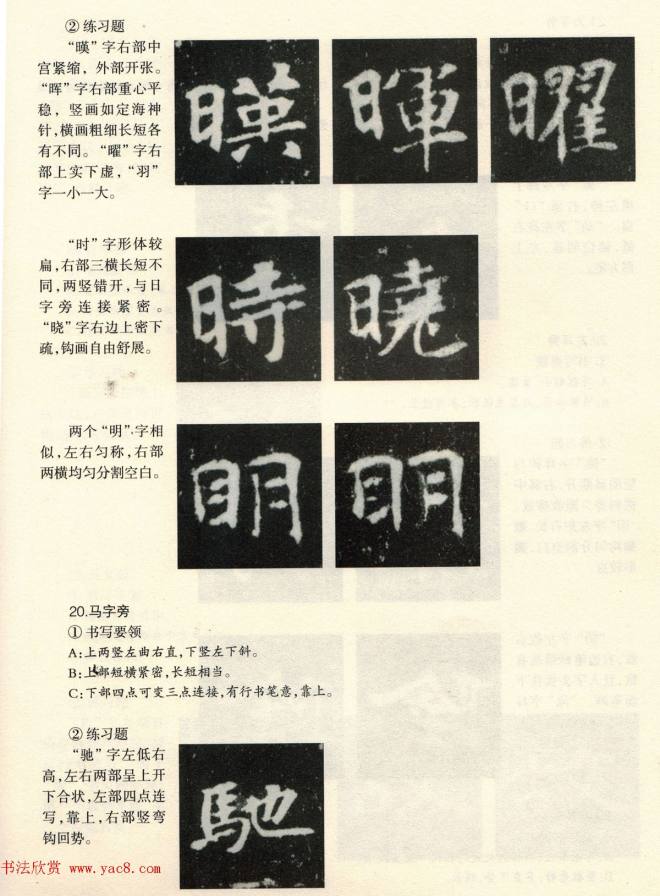 ② 练习题
“暵”字右部中
宫紧缩，外部开张。
“晖”字右部重心平
稳，竖画如定海神
针，横画粗细长短各
有不同。“曜”字右
部上实下虚，“羽”
字一小一大。
暵 暉 曜
“时”字形体较
扁，右部三横长短不
同，两竖错开，与日
字旁连接紧密。
“晓”字右边上密下
疏，钩画自由舒展。
時 曉
两个“明”字相
似，左右匀称，右部
两横均匀分割空白。
明 明
20.马字旁
① 书写要领
A：上两竖左曲右直，下竖左下斜。
B：上部短横紧密，长短相当。
C：下部四点可变三点连接，有行书笔意，靠上。
② 练习题
“驰”字左低右
高，左右两部呈上开
下合状，左部四点连
写，靠上，右部竖弯
钩回势。
馳
书法欣赏 www.yac8.com